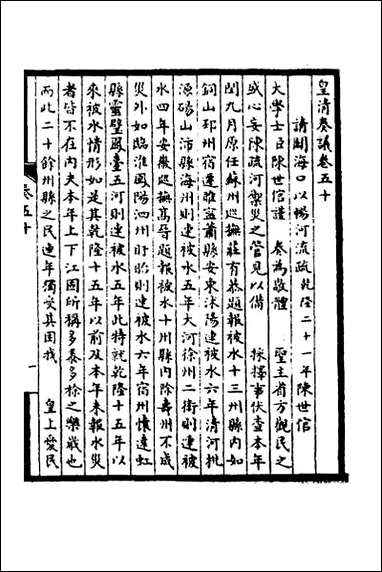 皇清奏議卷五十
請開海口以暢河流疏乾隆二十一年陳世倌
大學士臣陳世倌謹 奏為敬體 聖主省方觀民之
盛心妄陳疏河弭災之管見以備 採擇事伏查本年
閏九月原任蘇州巡撫莊有恭題報被水十三州縣内如
銅山邳州宿遷睢寧蕭縣安東沭陽連被水六年清河桃
源碭山沛縣海州則連被水五年大河徐州二衛則連被
水四年安徽巡撫高晉題報被水十州縣内除壽州不成
災外如臨淮鳳陽泗州盱眙則連被水六年宿州懷遠虹
縣靈璧鳳臺五河則連被水五年此特就乾隆十五年以
來被水情形如是其乾隆十五年以前及本年未報水災
者皆不在内夫本年上下江固所稱多黍多稌之樂歲也
而此二十餘州縣之民連年獨受其困我 皇上愛民
卷五十
一